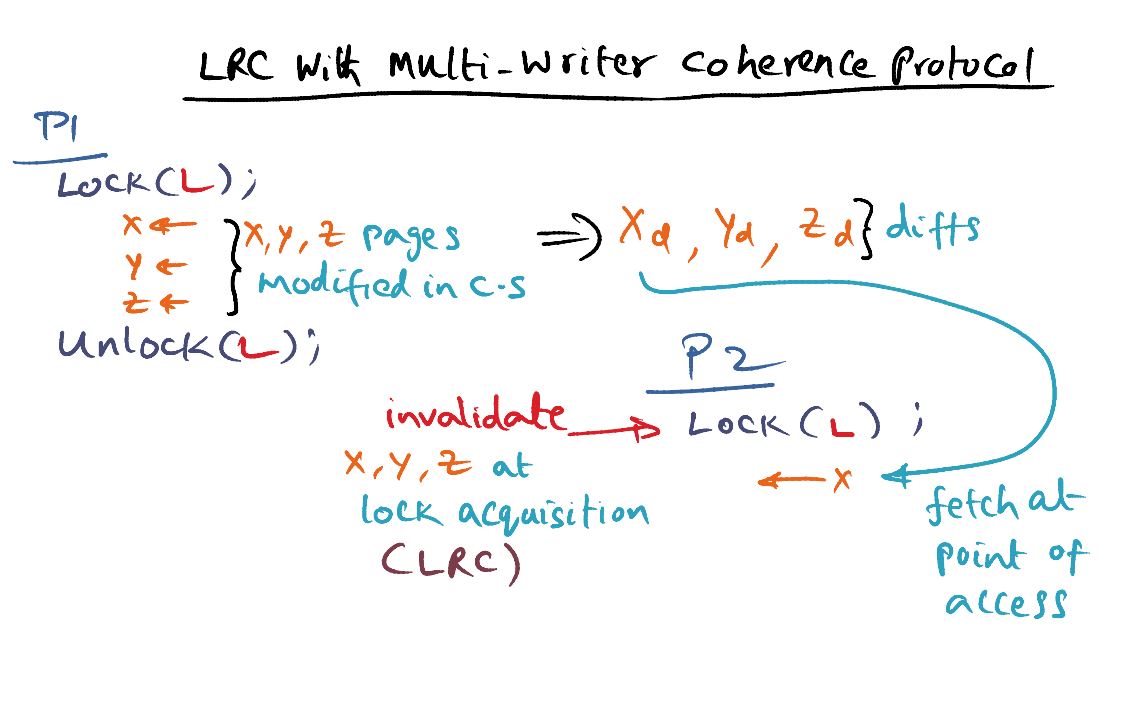 LRC With Multi-Writer Coherence Protocol
P1
Lock(L);
X ←
Y ←
Z ←
} X, Y, Z pages
modified in C-S
⇒ Xd, Yd, Zd } diffs
Unlock(L);
P2
invalidate → Lock(L);
X, Y, Z at
lock acquisition
(LRC)
← X
fetch at
point of
access